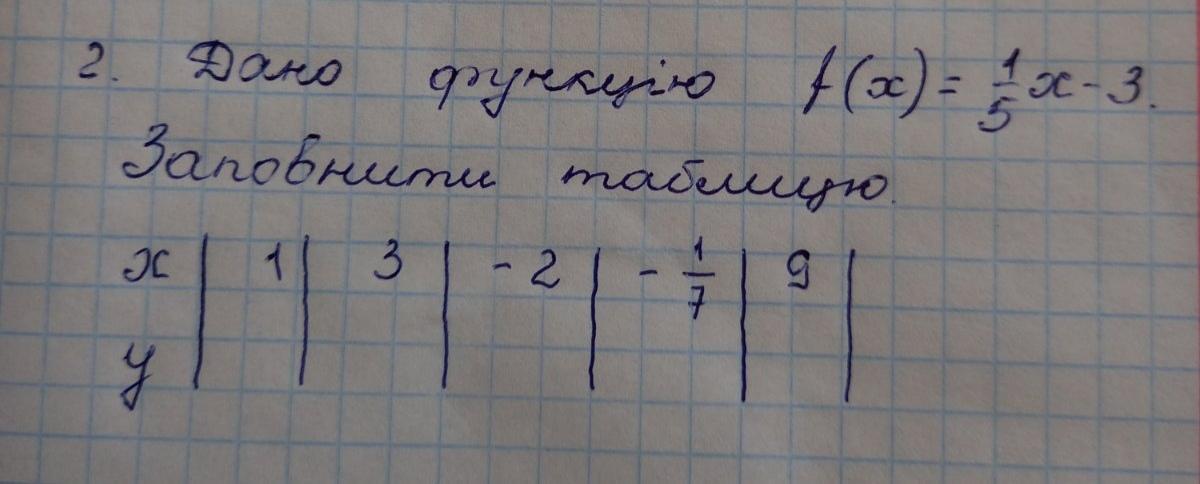 2. Дано функцію f(x) = 1/5 x - 3.
Заповнити таблицю.
x | 1 | 3 | -2 | - 1/7 | 9 |
y